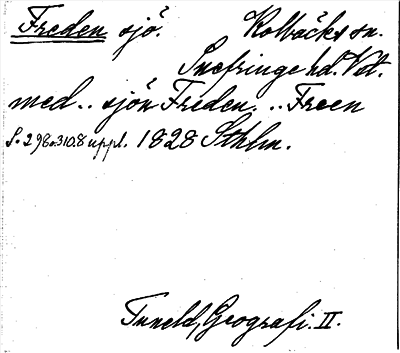 Freden sjö. Kolbäcks sn.
Snefringe hd. Vstl.
med .. sjön Freden. .. Freen
S. 298 o. 310. 8 uppl. 1828 Sthlm.
Tuneld, Geografi. II.